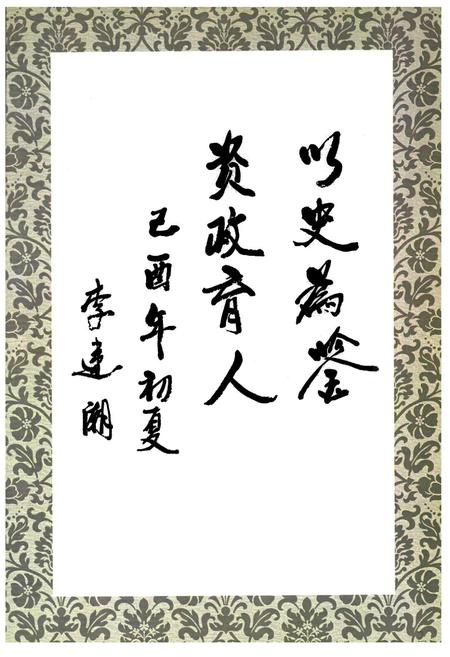 以史為鉴
资政育人
己酉年初夏
李建